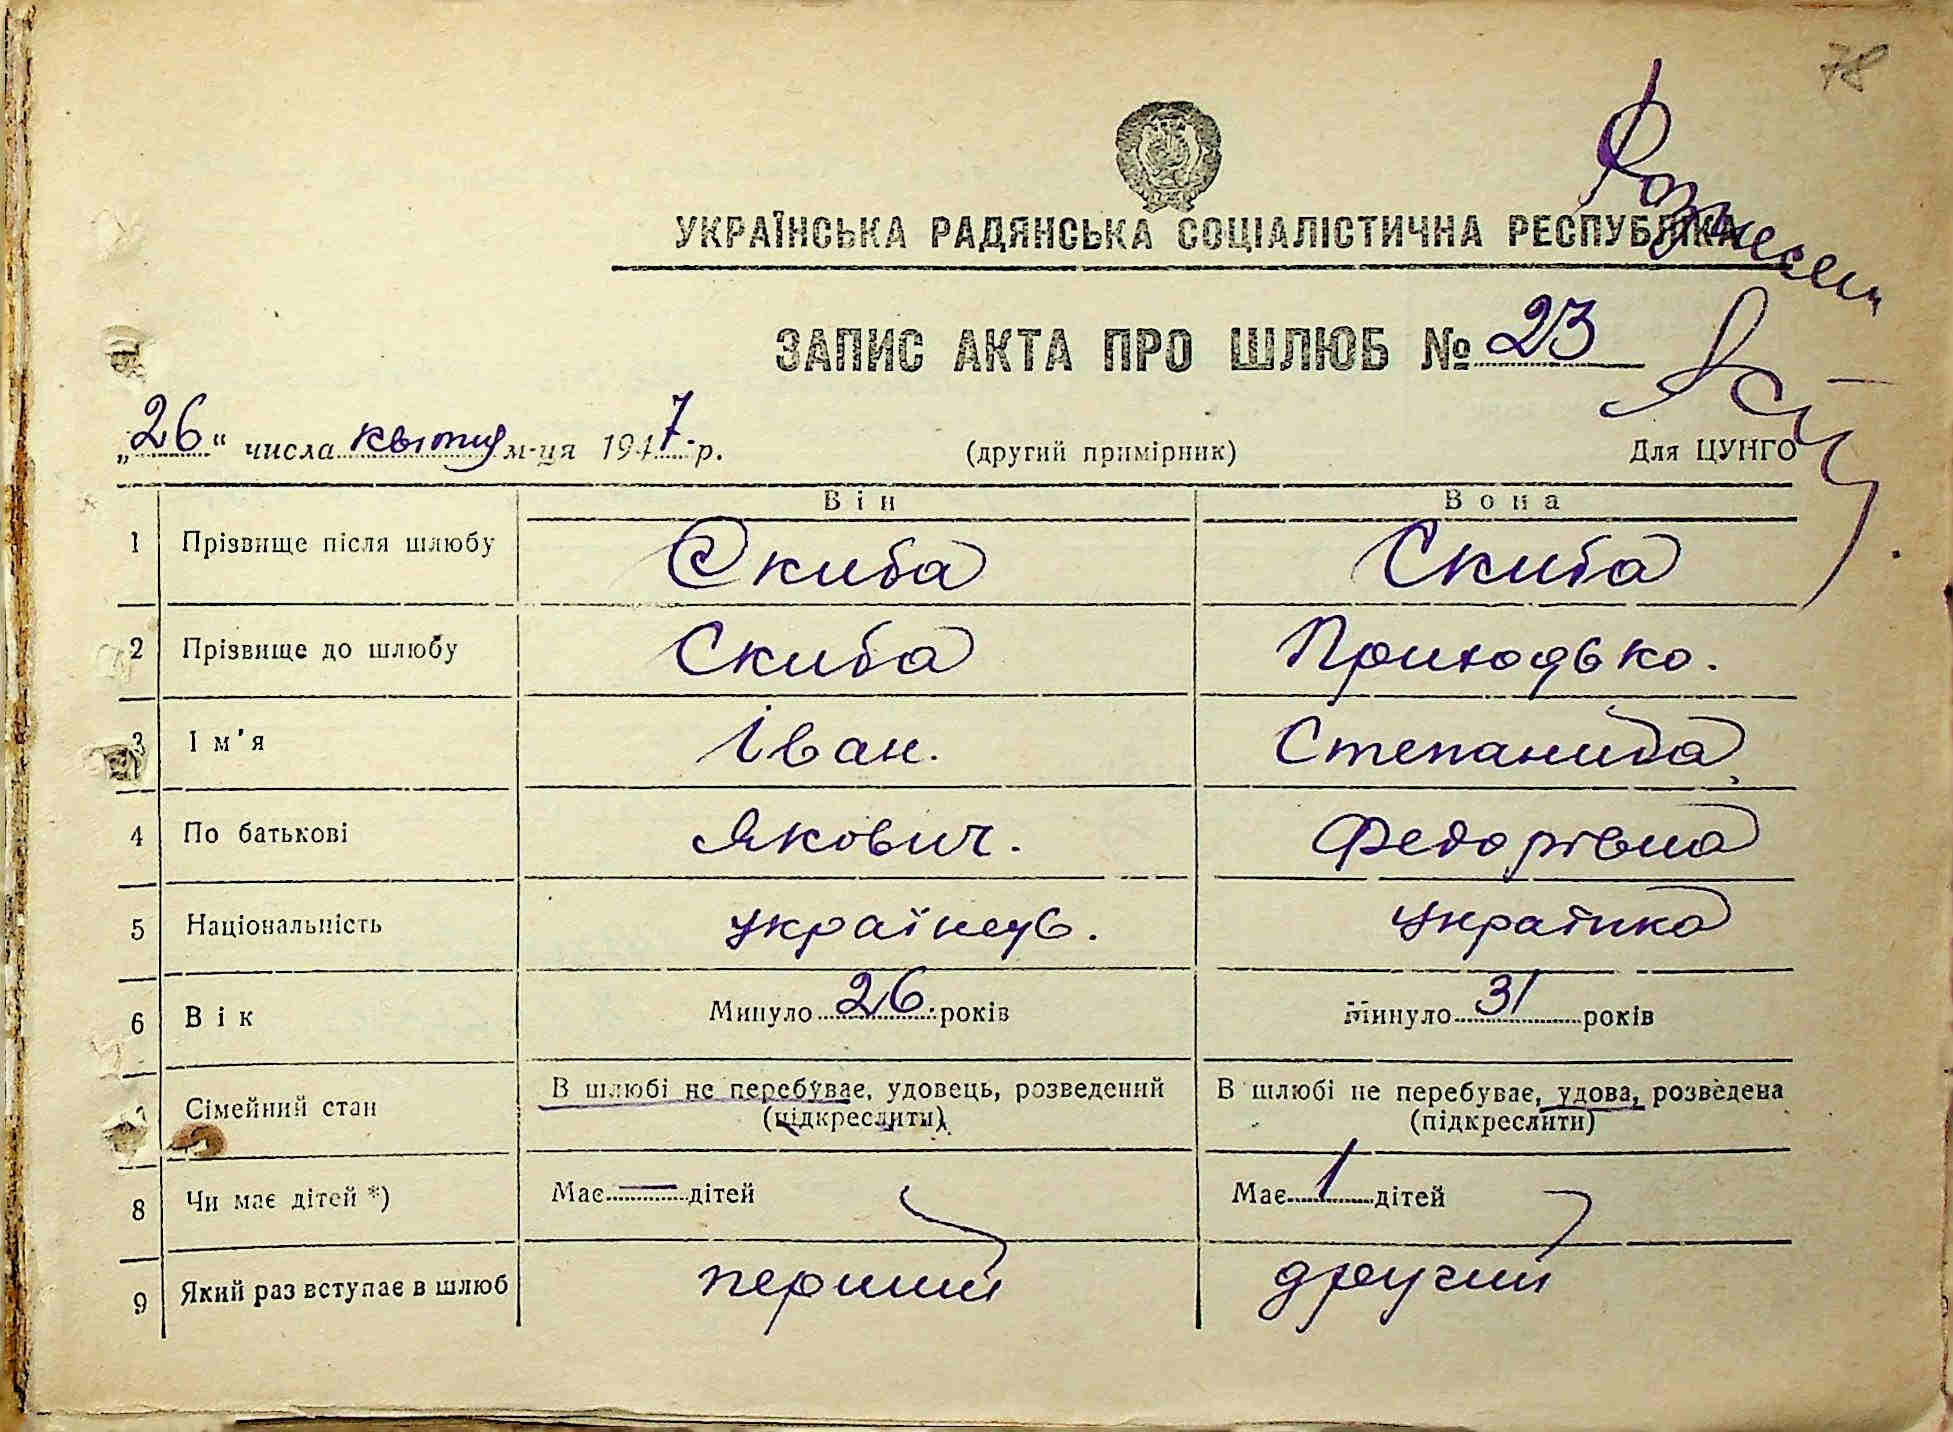 78
УКРАЇНСЬКА РАДЯНСЬКА СОЦІАЛІСТИЧНА РЕСПУБЛІКА
ЗАПИС АКТА ПРО ШЛЮБ № 23
„26“ числа квітня м-ця 1947 р. (другий примірник) Для ЦУНГО
Він Вона
1 Прізвище після шлюбу Скиба Скиба
2 Прізвище до шлюбу Скиба Приходько.
3 Ім'я Іван. Степанида
4 По батькові Якович. Федорівна
5 Національність українець. українка
6 Вік Минуло 26 років Минуло 31 років
Сімейний стан В шлюбі не перебуває, удовець, розведений В шлюбі не перебуває, удова, розведена
(підкреслити) (підкреслити)
8 Чи має дітей *) Має — дітей Має 1 дітей
9 Який раз вступає в шлюб перший другий